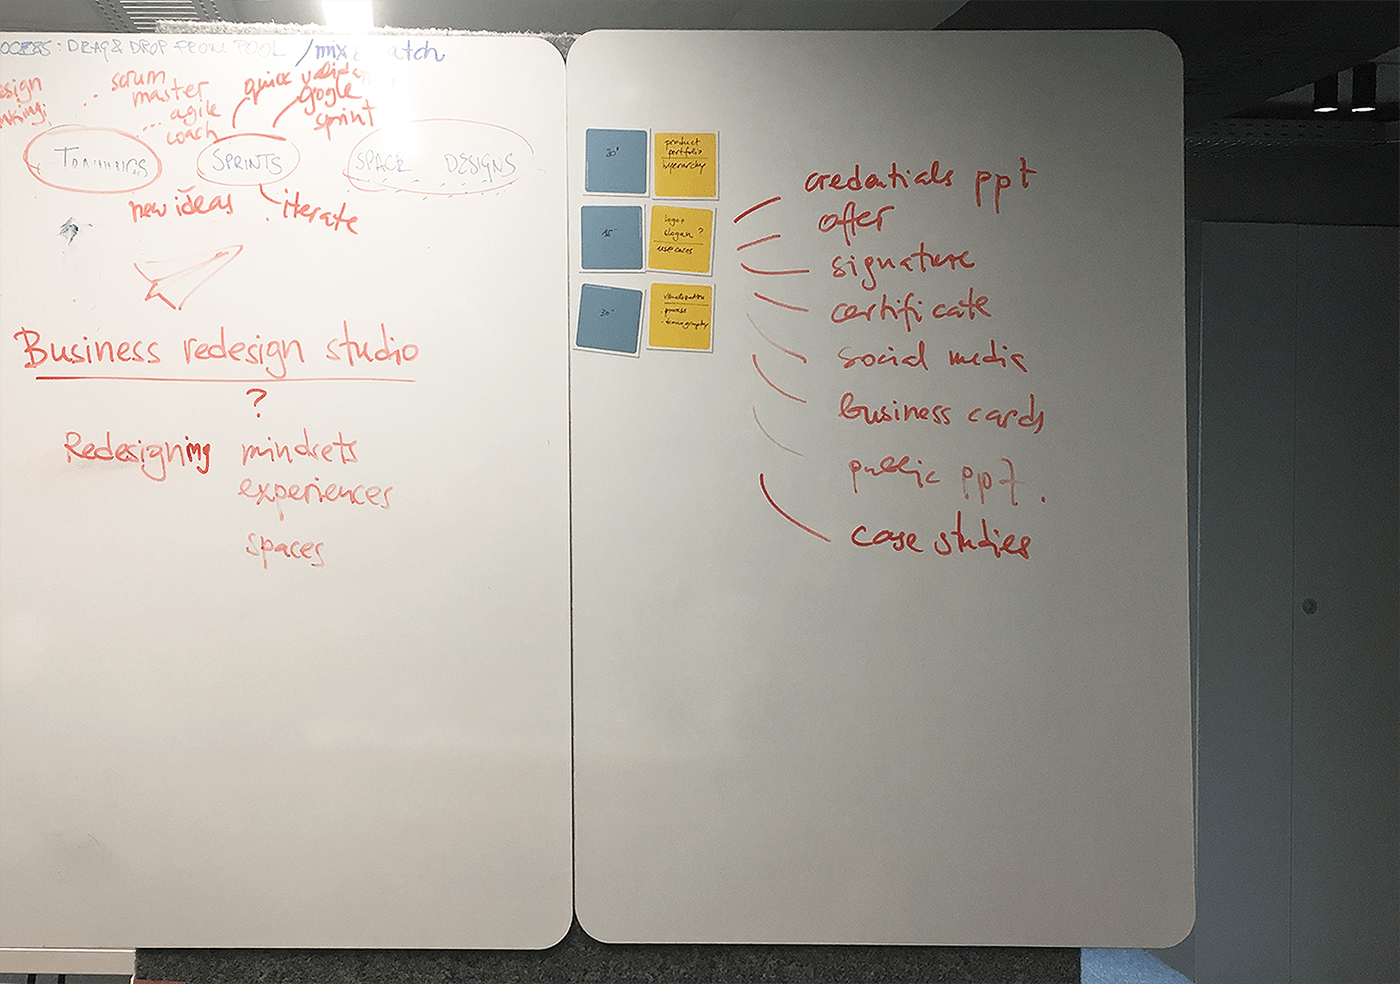 OCESS: DRAG & DROP FROM POOL / mix atch
esign
nking:
scrum
master
agile
coach
quick valida
google
sprint
TRAININGS
SPRINTS
SPACE DESIGNS
new ideas
iterate
Business redesign studio
?
Redesigning mindsets
experiences
spaces
30"
product
portfolio
hyerarchy
15"
logo +
slogan ?
use cases
30"
visualisation
process
credentials ppt
offer
signature
certificate
social media
business cards
public ppt.
case studies